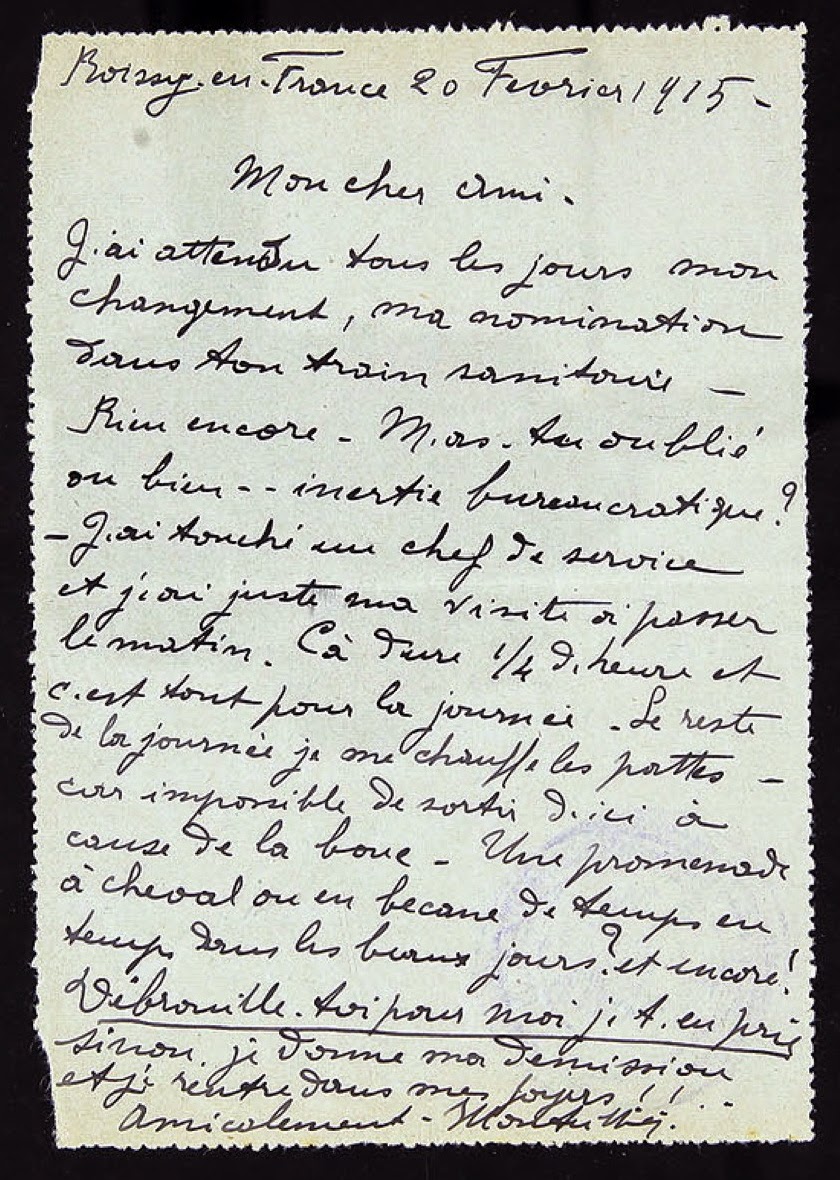 Roissy-en-France 20 Fevrier 1915 -
Mon cher Ami -
J'ai attendu tous les jours mon
changement, ma nomination
dans ton train sanitaire -
Rien encore - M'as-tu oublié
ou bien -- inertie bureaucratique ?
- J'ai touché un chef de service
et j'ai juste ma visite à passer
le matin. Cà dure 1/4 d'heure et
c'est tout pour la journée. Le reste
de la journée je me chauffe les pattes -
car impossible de sortir d'ici à
cause de la boue - Une promenade
à cheval ou en becane de temps en
temps dans les beaux jours ? et encore !
Débrouille-toi pour moi je t'en prie
sinon, je donne ma demission
et je rentre dans mes foyers !! ..
Amicalement -